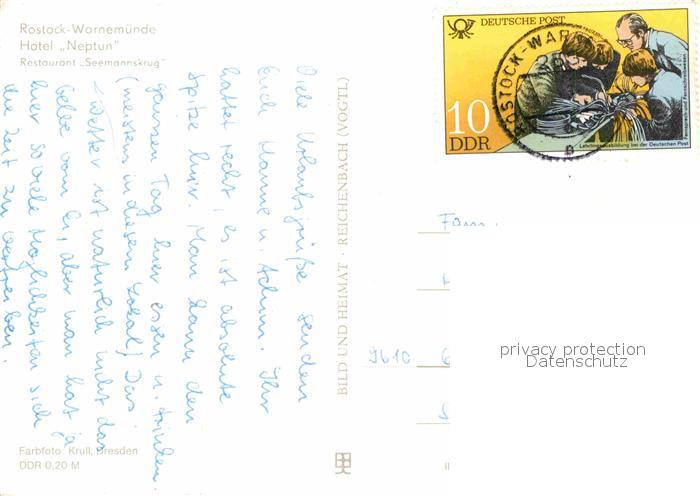 Rostock-Warnemünde
Hotel „Neptun"
Restaurant „Seemannskrug"
Viele Urlaubsgrüße senden
Euch Hanne u. Achim. Ihr
hattet recht, es ist absolute
Spitze hier. Man kann den
ganzen Tag hier essen u. trinken
(meistens in diesem Lokal) Das
Wetter ist natürlich nicht das
Gelbe vom Ei, aber man hat ja
hier so viele Möglichkeiten sich
die Zeit zu vertreiben.
Farbfoto: Krull, Dresden
DDR 0,20 M
BILD UND HEIMAT · REICHENBACH (VOGTL)
DEUTSCHE POST
10
DDR
Lehrlingsausbildung bei der Deutschen Post
ROSTOCK-WAR
Fam.
9610
privacy protection
Datenschutz